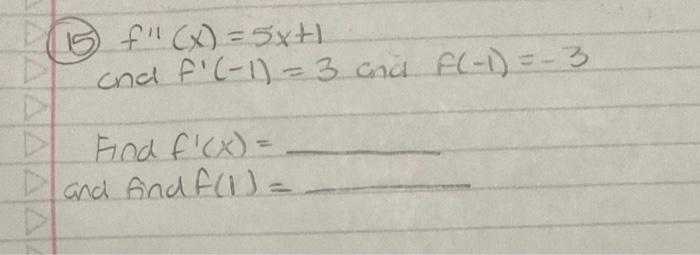 15 f''(x) = 5x+1
and f'(-1) = 3 and f(-1) = -3
Find f'(x) = ________
and find f(1) = ________